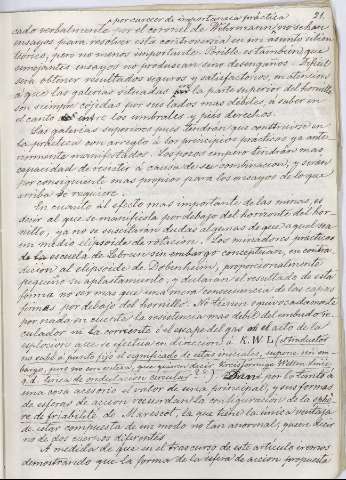 por carecer de importancia práctica 21
cado verbalmente por el coronel de Bibermann, no se han
ensayos para resolver esta controversia; es un asunto
teórico, pero no menos importante. Posible es también que
semejantes ensayos no produzcan sino desengaños. Difícil
será obtener resultados seguros y satisfactorios, en atención
á que las galerías situadas por la parte superior del hornillo
son siempre cojidas por sus lados mas débiles, á saber en
el canto entre los umbrales y pies derechos.
Las galerías superiores pues tendrán que construirse en
la práctica con arreglo á los principios prácticos ya ante-
riormente manifestados. Los pozos en paño tendrán mas
capacidad de resistir á causa de su combinacion, y serán
por consiguiente mas propios para los ensayos de lo que
arriba se requiere.
En cuanto al efecto mas importante de las minas, es
decir al que se manifiesta por debajo del horizonte del hor-
nillo, ya no se suscitarán dudas algunas de que aquel sea
un medio elipsoide de rotacion. Los minadores prácticos
de la escuela de Lebrun sin embargo conceptúan, en contra-
diccion al elipsoide de Dobenheim, proporcionalmente
pequeño su aplastamiento, y declaran el resultado de esta
forma no ser mas que una mera consecuencia de las capas
firmes por debajo del hornillo. No tienen equivocadamente
por modo en cuenta la resistencia mas débil del embudo
culador ni la corriente ó el escape del gas en el acto de la
esplosion que se efectua en direccion á K. W. L. (el traductor
no sabe á punto fijo el significado de estas iniciales, supone sin em-
bargo, que quieren decir
q. d. linea de
una cosa accesoria el valor de una principal, y sus formas
de esferas de accion recuerdan la configuracion de la esfe-
ra de friabilité de Marescot, la que tiene la única ventaja
de estar compuesta de un modo no tan anormal, quiere decir
no de dos cuerpos diferentes.
A medida de que en el trascurso de este artículo iremos
demostrando que la forma de la esfera de accion propuesta